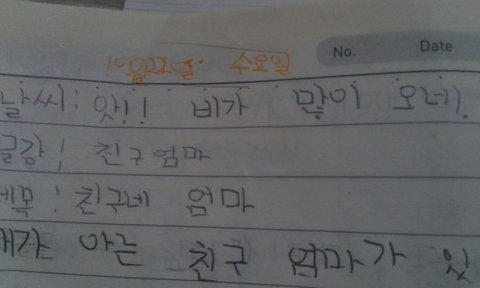 No. Date
수요일
날씨: 앗!! 비가 많이 오네.
글감: 친구엄마
제목: 친구네 엄마
내가 아는 친구 엄마가 있